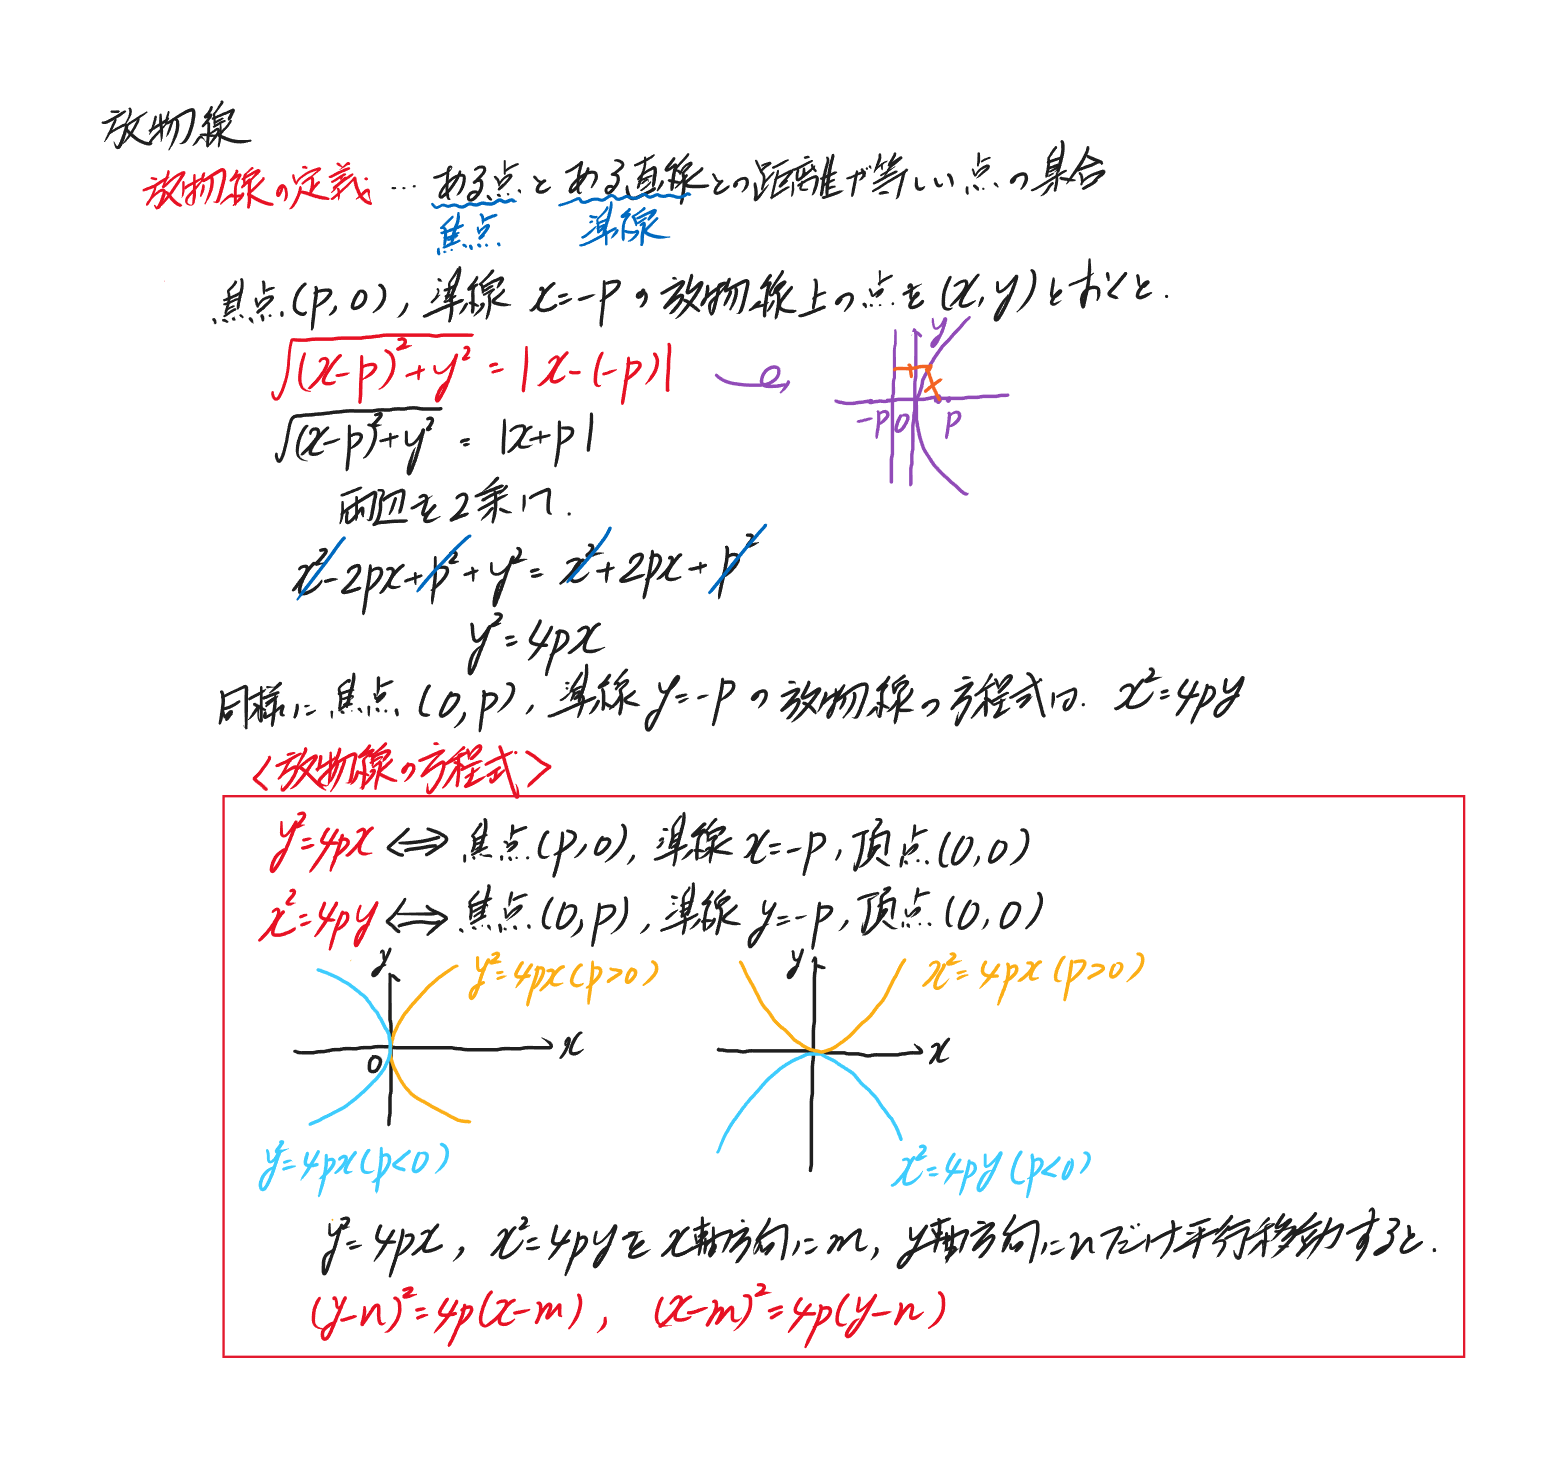 放物線
放物線の定義 … ある点とある直線との距離が等しい点の集合
焦点 準線
焦点(p,0), 準線 x=-p の放物線上の点を(x,y)とおくと.
√((x-p)²+y²) = |x-(-p)|
y
-p 0 p
√((x-p)²+y²) = |x+p|
両辺を2乗して.
x²-2px+p²+y²=x²+2px+p²
y²=4px
同様に焦点(0,p), 準線 y=-p の放物線の方程式は. x²=4py
<放物線の方程式>
y²=4px ⟺ 焦点(p,0), 準線 x=-p, 頂点(0,0)
x²=4py ⟺ 焦点(0,p), 準線 y=-p, 頂点(0,0)
y y²=4px(p>0) y x²=4px(p>0)
x x
0
y²=4px(p<0) x²=4py(p<0)
y²=4px, x²=4pyを x軸方向にm, y軸方向にnだけ平行移動すると.
(y-n)²=4p(x-m), (x-m)²=4p(y-n)